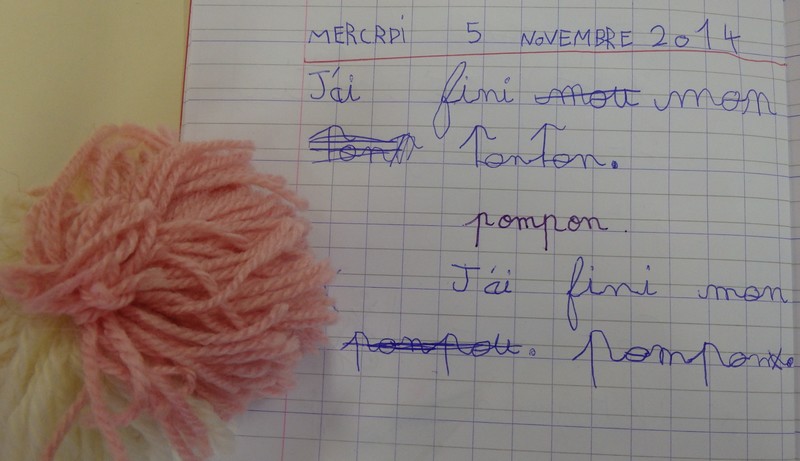 MERCRDI 5 NOVEMBRE 2014
J'ai fini mon
PonPon.
pompon.
J'ai fini mon
pompon